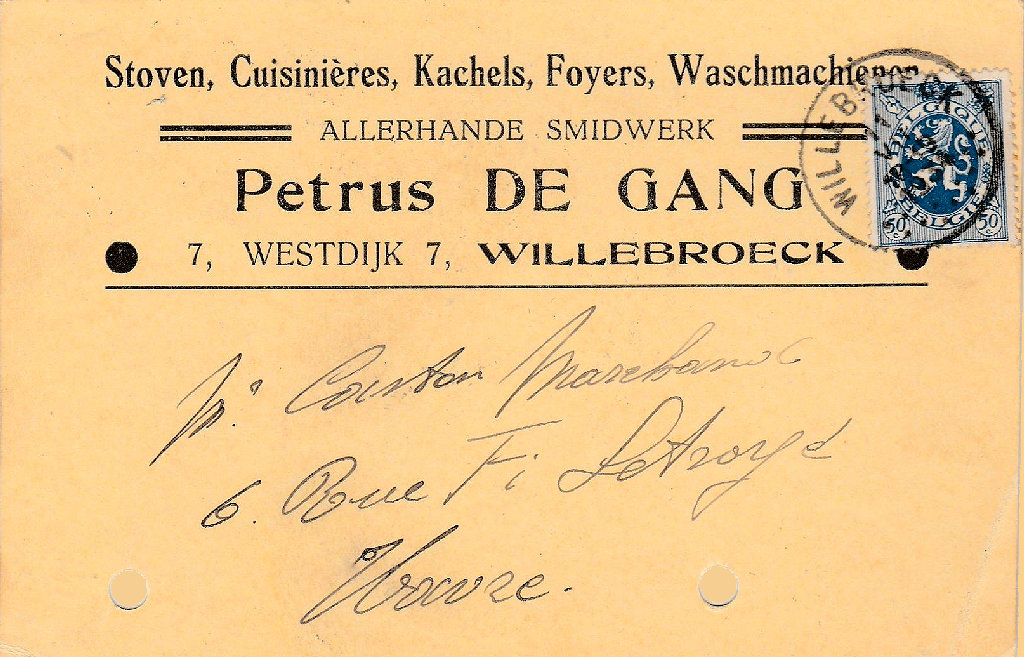 Stoven, Cuisinières, Kachels, Foyers, Waschmachienen
ALLERHANDE SMIDWERK
Petrus DE GANG
7, WESTDIJK 7, WILLEBROECK
WILLEBROECK
BELGIQUE
BELGIE
50 50
Gaston Marchand
6. Rue Fs
Wavre.